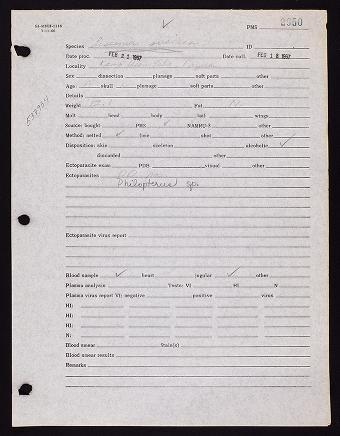 SI-MNH-1116
7-11-66
PMS 2950
Species ID
Date proc. FEB 21 1967 Date coll. FEB 18 1967
Locality
Sex dissection plumage soft parts other
Age: skull plumage soft parts other
Details
Weight Fat N
Molt head body tail wings
Source: bought PMS ✓ NAMRU-3 other
Method: netted ✓ lime shot other
Disposition: skin skeleton alcoholic ✓
discarded other
Ectoparasite exam: PDB visual other
Ectoparasites
Philopterus sp.
Ectoparasite virus report
Blood sample ✓ heart jugular ✓ other
Plasma analysis Tests: VI HI N
Plasma virus report VI: negative positive virus
HI:
HI:
HI:
N:
Blood smear Stain(s)
Blood smear results
Remarks